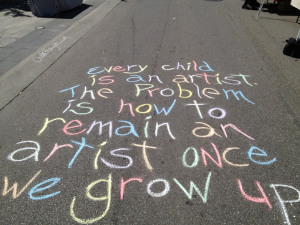 every child
is an artist.
The Problem
is how to
remain an
artist once
we grow up